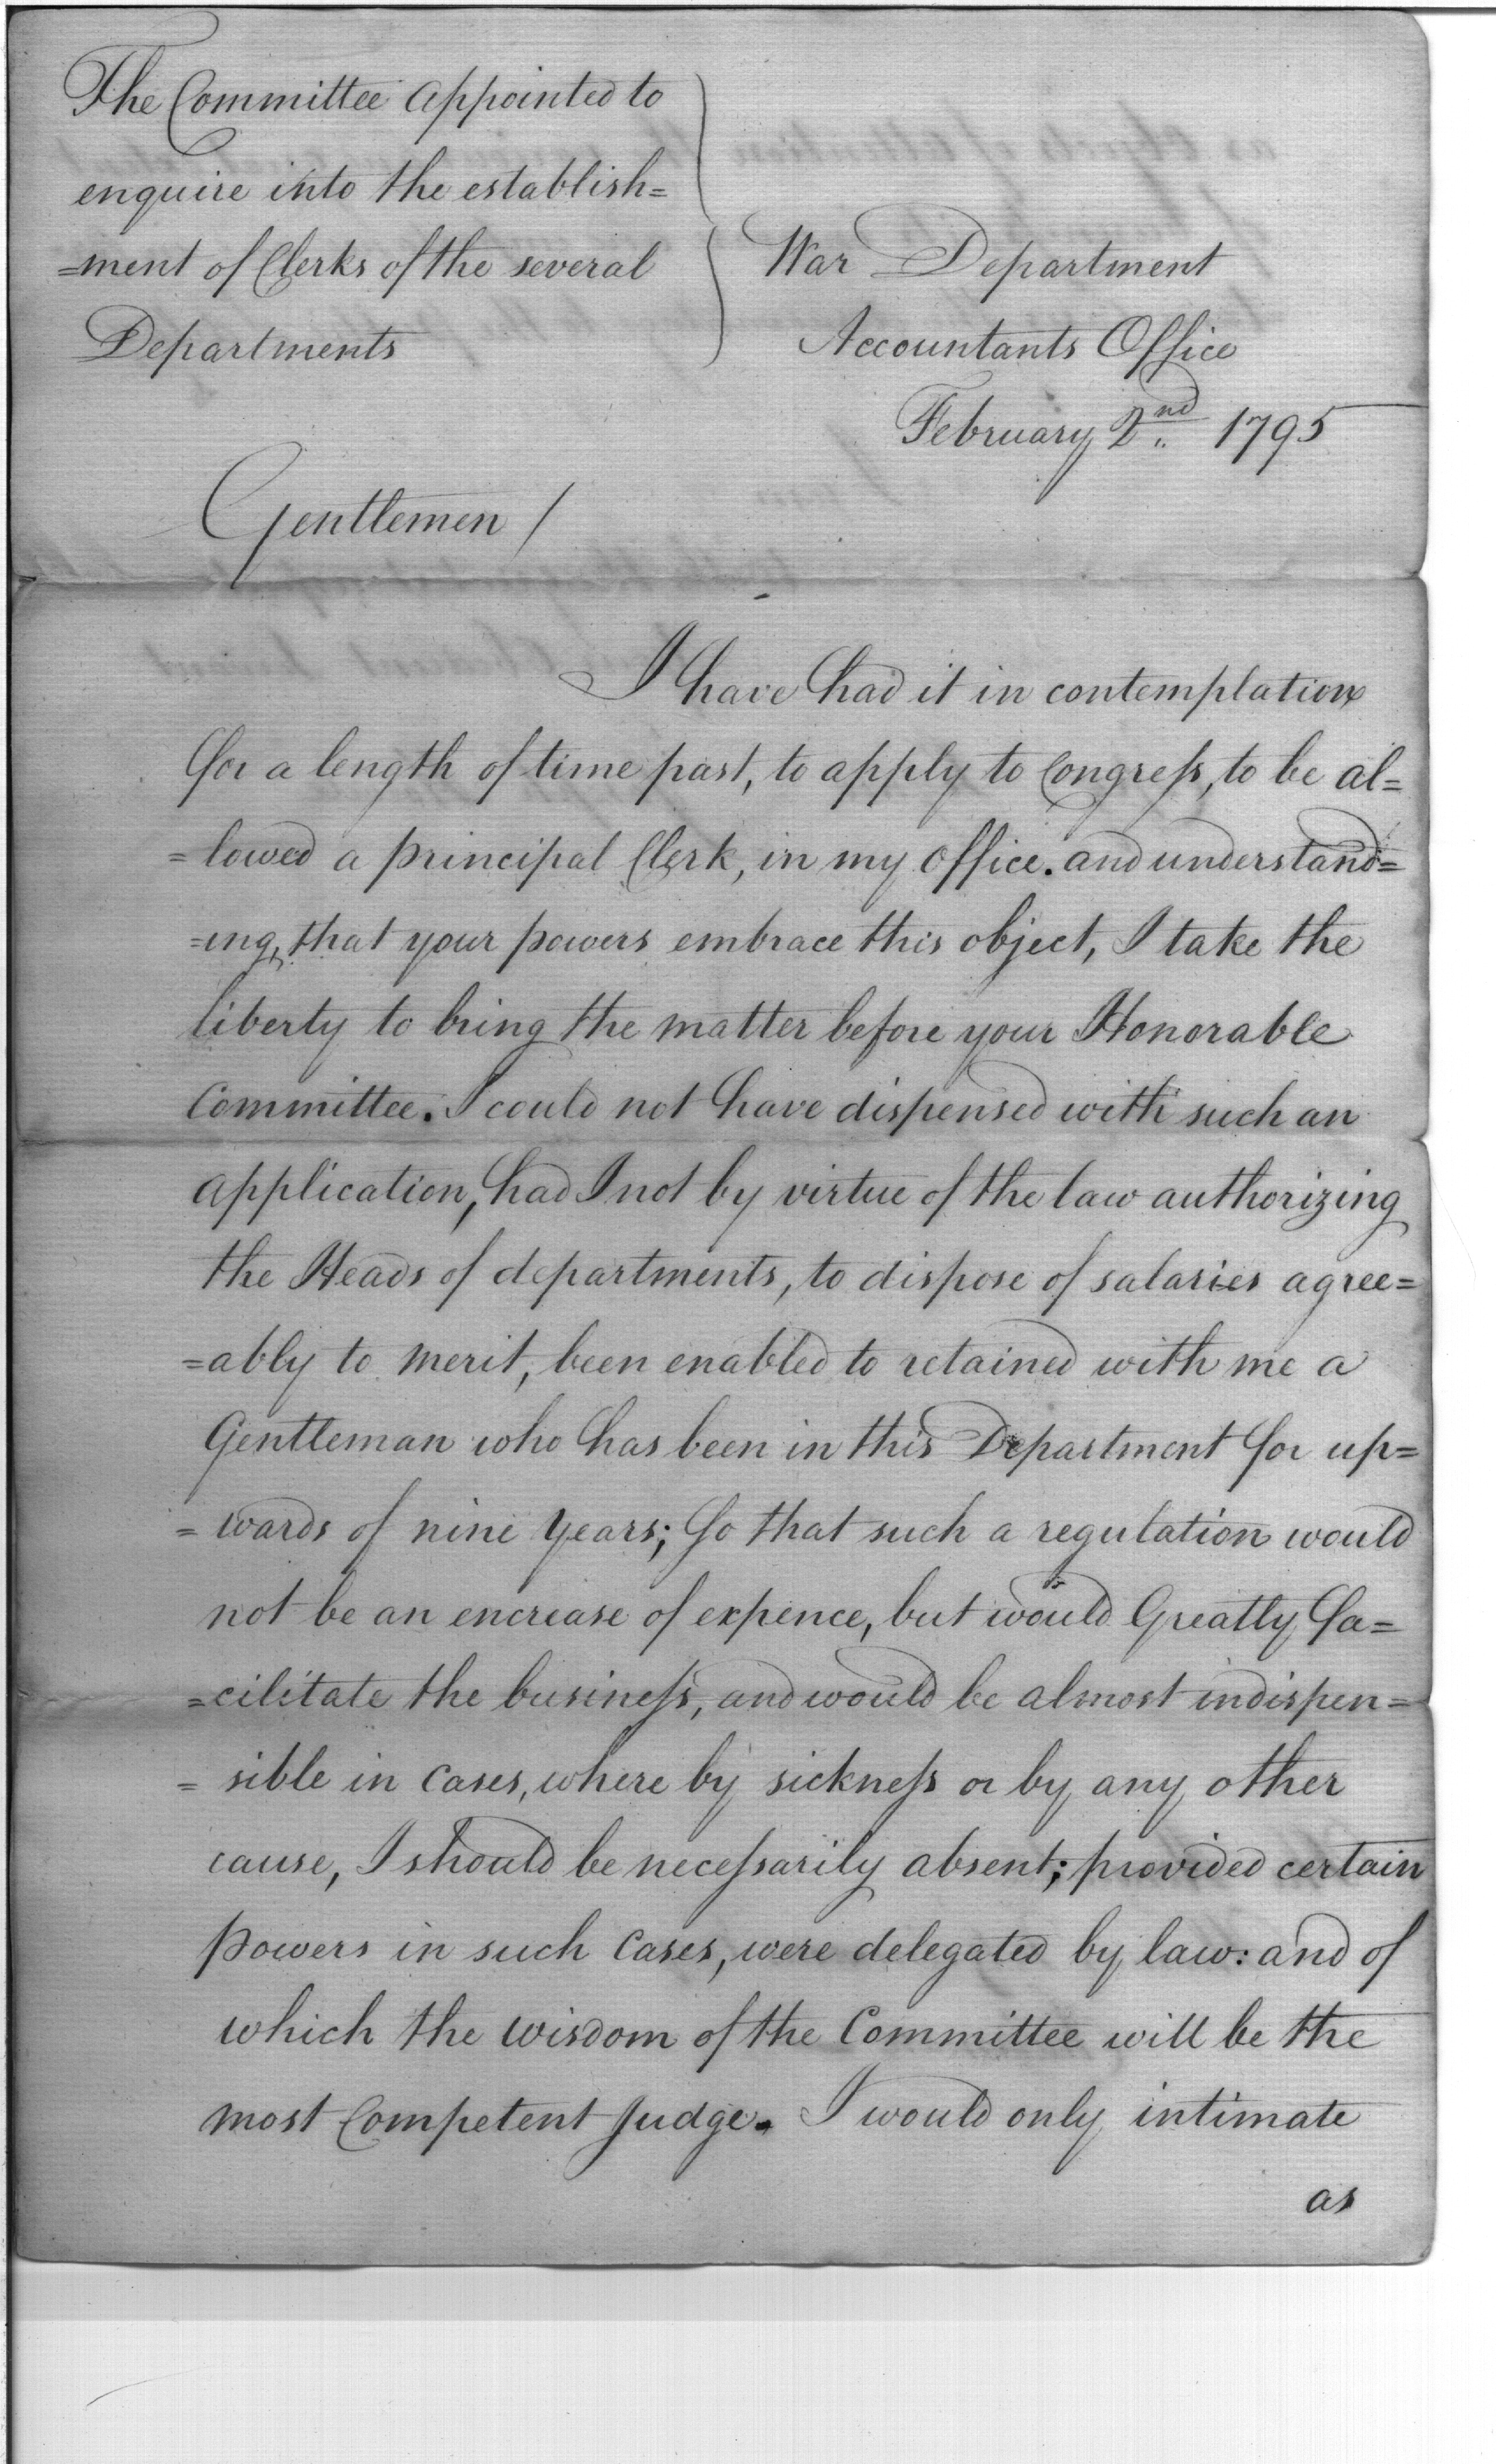 The Committee appointed to
enquire into the establish=
=ment of Clerks of the several
Departments
War Department
Accountants Office
February 2nd 1795
Gentlemen /
I have had it in contemplation
for a length of time past, to apply to Congreſs, to be al=
=lowed a principal Clerk, in my office. and understand=
=ing, that your powers embrace this object, I take the
liberty to bring the matter before your Honorable
Committee. I could not have dispensed with such an
application, had I not by virtue of the law authorizing
the Heads of departments, to dispose of salaries agree=
=ably to merit, been enabled to retained with me a
Gentleman who has been in this Department for up=
=wards of nine years; So that such a regulation would
not be an encrease of expence, but would Greatly fa=
=cilitate the busineſs, and would be almost indispen=
=sible in cases, where by sickneſs or by any other
cause, I should be neceſsarily absent; provided certain
powers in such cases, were delegated by law: and of
which the wisdom of the Committee will be the
most competent Judge. I would only intimate
as